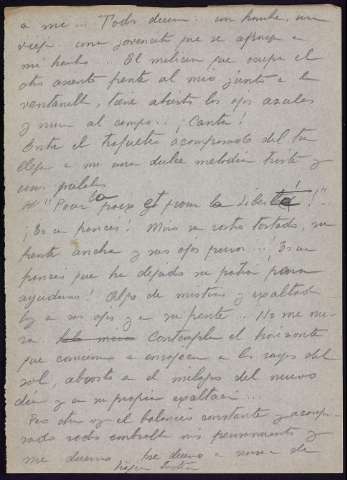 a me... Todos duermen: un hombre, una
vieja, una jovencita que se apoya a
mi hombro... El melitar que ocupa el
otro asiento frente al mio junto a la
ventanilla, tiene abiertos los ojos azules
y mira al campo... ¡Canta!
Entre el traqueteo acompasado del tren
llega a me una dulce melodia triste y
unas palabras
"Pour la paix et pour la liberté!".
¡Es un frances! Miro su rostro tostado, su
frente ancha y sus ojos puros...! Es un
frances que ha dejado su patria para
ayudarnos! Algo de mistico y exaltado
hay a sus ojos y a su frente... No me mi-
ra Contempla el horizonte
que comienza a enrojecer a los rayos del
sol, absorto a el milagro del nuevo
dia y a su propia exaltación...
Pero otra vez el balanceo constante y acompa-
sado vuelve mis pensamientos y
me duermo